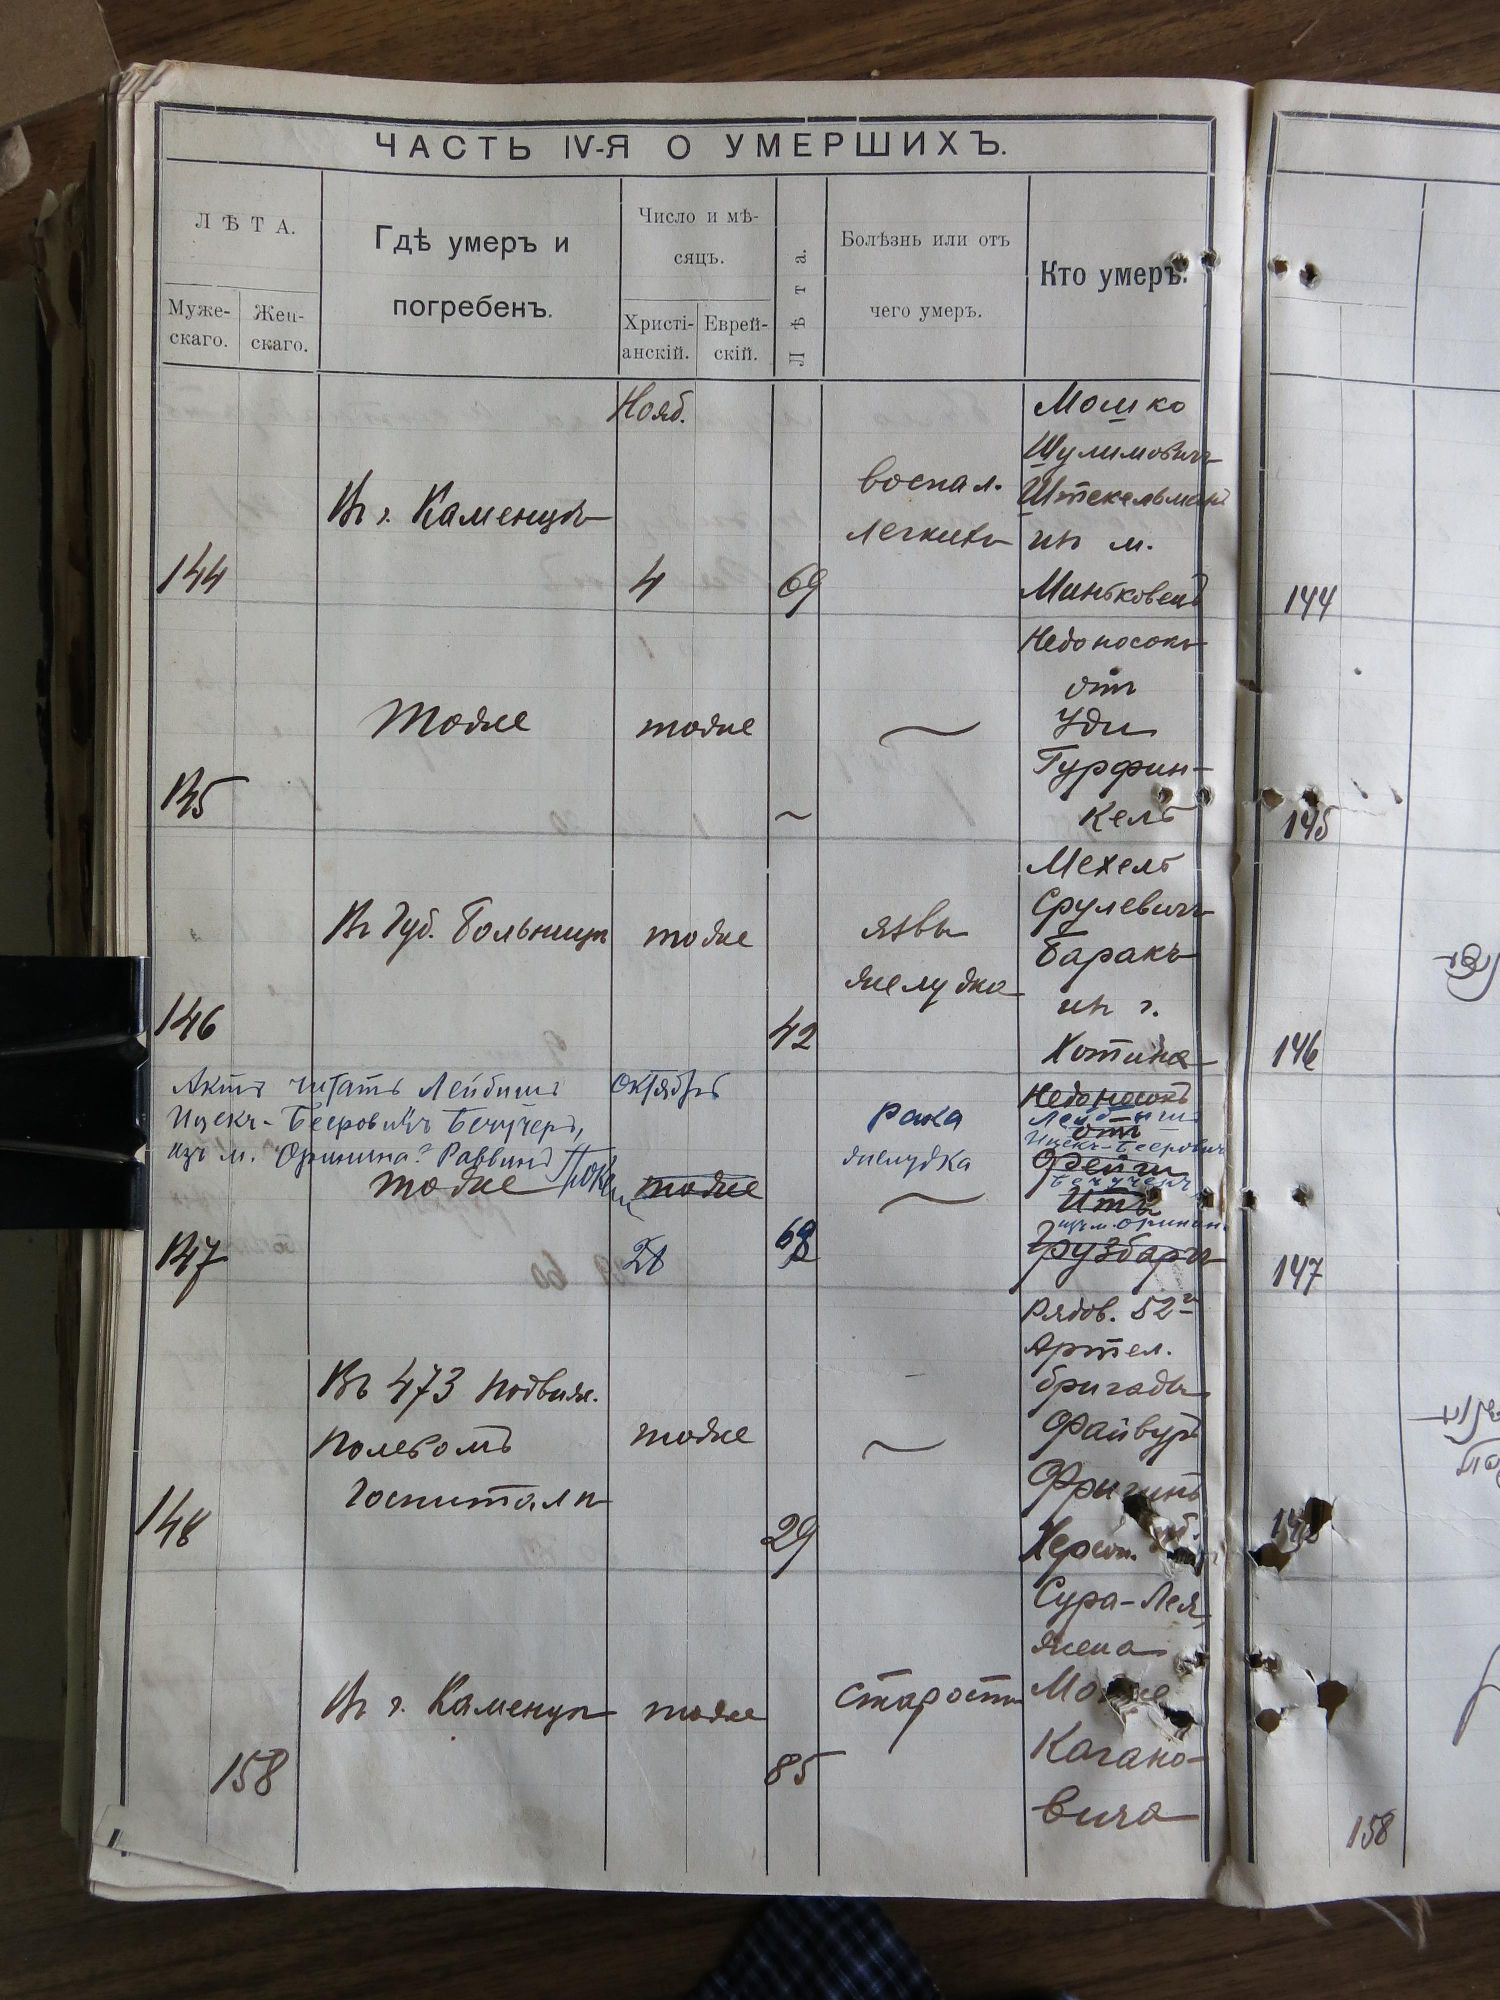 ЧАСТЬ IV-Я О УМЕРШИХЪ.
ЛѢТА.
Муже-
скаго.
Жен-
скаго.
Гдѣ умеръ и
погребенъ.
Число и мѣ-
сяцъ.
Христі-
анскій.
Еврей-
скій.
Лѣта.
Болѣзнь или отъ
чего умеръ.
Кто умеръ.
144
Въ г. Каменцѣ
Нояб.
4
69
воспал.
легкихъ
Мошко
Шулимовичъ
Штекельманъ
изъ м.
Миньковецъ
144
145
Тоже
тоже
~
~
Недоносокъ
отъ
Уди
Гурфин-
кель
145
146
Въ Губ. Больницѣ
тоже
42
язвы
желудка
Мехель
Срулевичъ
Баракъ
изъ г.
Хотина
146
Актъ читать Лейбишъ
Ицекъ-Бееровичъ Бечучеръ,
изъ м. Оринина. Раввинъ
147
тоже
октябрь
тоже
28
68
рака
желудка
~
Недоносокъ
Лейбишъ
отъ
Ицекъ-Бееровичъ
Фейги
Бечучеръ
Итъ
изъ м. Оринин
Грузбаръ
147
148
Въ 473 подвиж.
полевомъ
госпиталѣ
тоже
29
~
рядов. 52й
Артил.
бригады
Файвушъ
Херсон.
158
Въ г. Каменцѣ
тоже
85
старости
Сура-Лея,
жена
Кагано-
вича
158